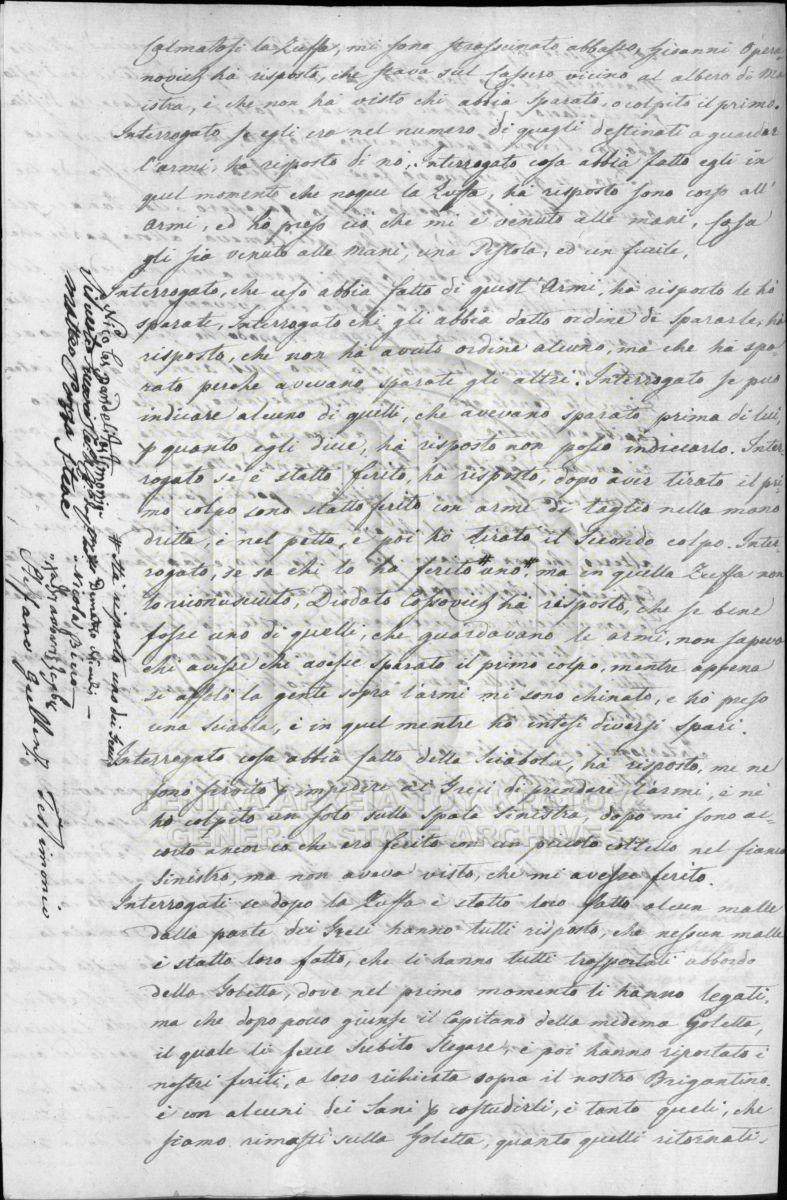 Calmatosi la Zuffa, mi sono strascinato abbasso, Gioanni Opera-
novich ha risposto, che stava sul Cassero vicino al albero di Ma-
istra, è che non ha visto chi abbia sparato, o colpito il primo.
Interrogato se egli era nel numero di quegli destinati a guardar
l'armi, ha risposto di no, Interrogato cosa abbia fatto egli in
quel momento che naque la Zuffa, ha risposto sono corso all'
Armi, ed ho preso ciò che mi è venuto alle mani, Cosa
gli sia venuto alle mani, una Pistola, ed un fucile,
Interrogato, che uso abbia fatto di quest'Armi, ha risposto le hò
sparate, Interrogato chi gli abbia datto ordine di spararle, hà
risposto, che non ha avuto ordine alcuno, ma che ha spa-
rato perche avevano sparati gli altri. Interrogato se può
indicare alcuno di quelli, che avevano sparato prima di lui,
p quanto egli dice, ha risposto non posso indiccarlo. Inter-
rogato se è statto ferito, ha risposto, dopo aver tirato il pri-
mo colpo sono statto ferito con arme di taglio nella mano
dritta, è nel petto, è poi hò tirato il secondo colpo. Inter-
rogato, se sa chi lo ha ferito # uno #, ma in quella Zuffa non
lo riconosciuto, Diodato Cossovich hà risposto, che se bene
fosse uno di quelli, che guardavano le armi, non sapeva
chi avesse che avesse sparato il primo colpo, mentre appena
si affolì la gente sopra l'armi mi sono chinato, e hò preso
una sciabla, è in quel mentre hò intesi diversi spari.
Interrogato cosa abbia fatto della Sciabola, hà risposto, me ne
sono servito p impedire ai Greci di prendere l'armi, è nè
hò colpito un solo sulla spala Sinistra, dopo mi sono ac-
corto ancor io che ero ferito con un piccolo coltello nel fianco
Sinistro, ma non aveva visto, chi mi avesse ferito.
Interrogati se dopo la Zuffa è statto loro fatto alcun malle
dalla parte dei Greci hanno tutti risposto, che nessun malle
è statto loro fatto, che li hanno tutti trasportati abbordo
della Goletta, dove nel primo momento li hanno legati,
ma che dopo poco giunse il Capitano della medema Goletta,
il quale li fecce subito slegare, è poi hanno riportato i
nostri feriti, a loro richiesta sopra il nostro Brigantino,
è con alcuni dei Sani p costudirli, è tanto queli, che
siamo rimasti sulla Goletta, quanto quelli ritornati.
# Ha risposto uno dei Greci
Matteo
Stefano Testimonio